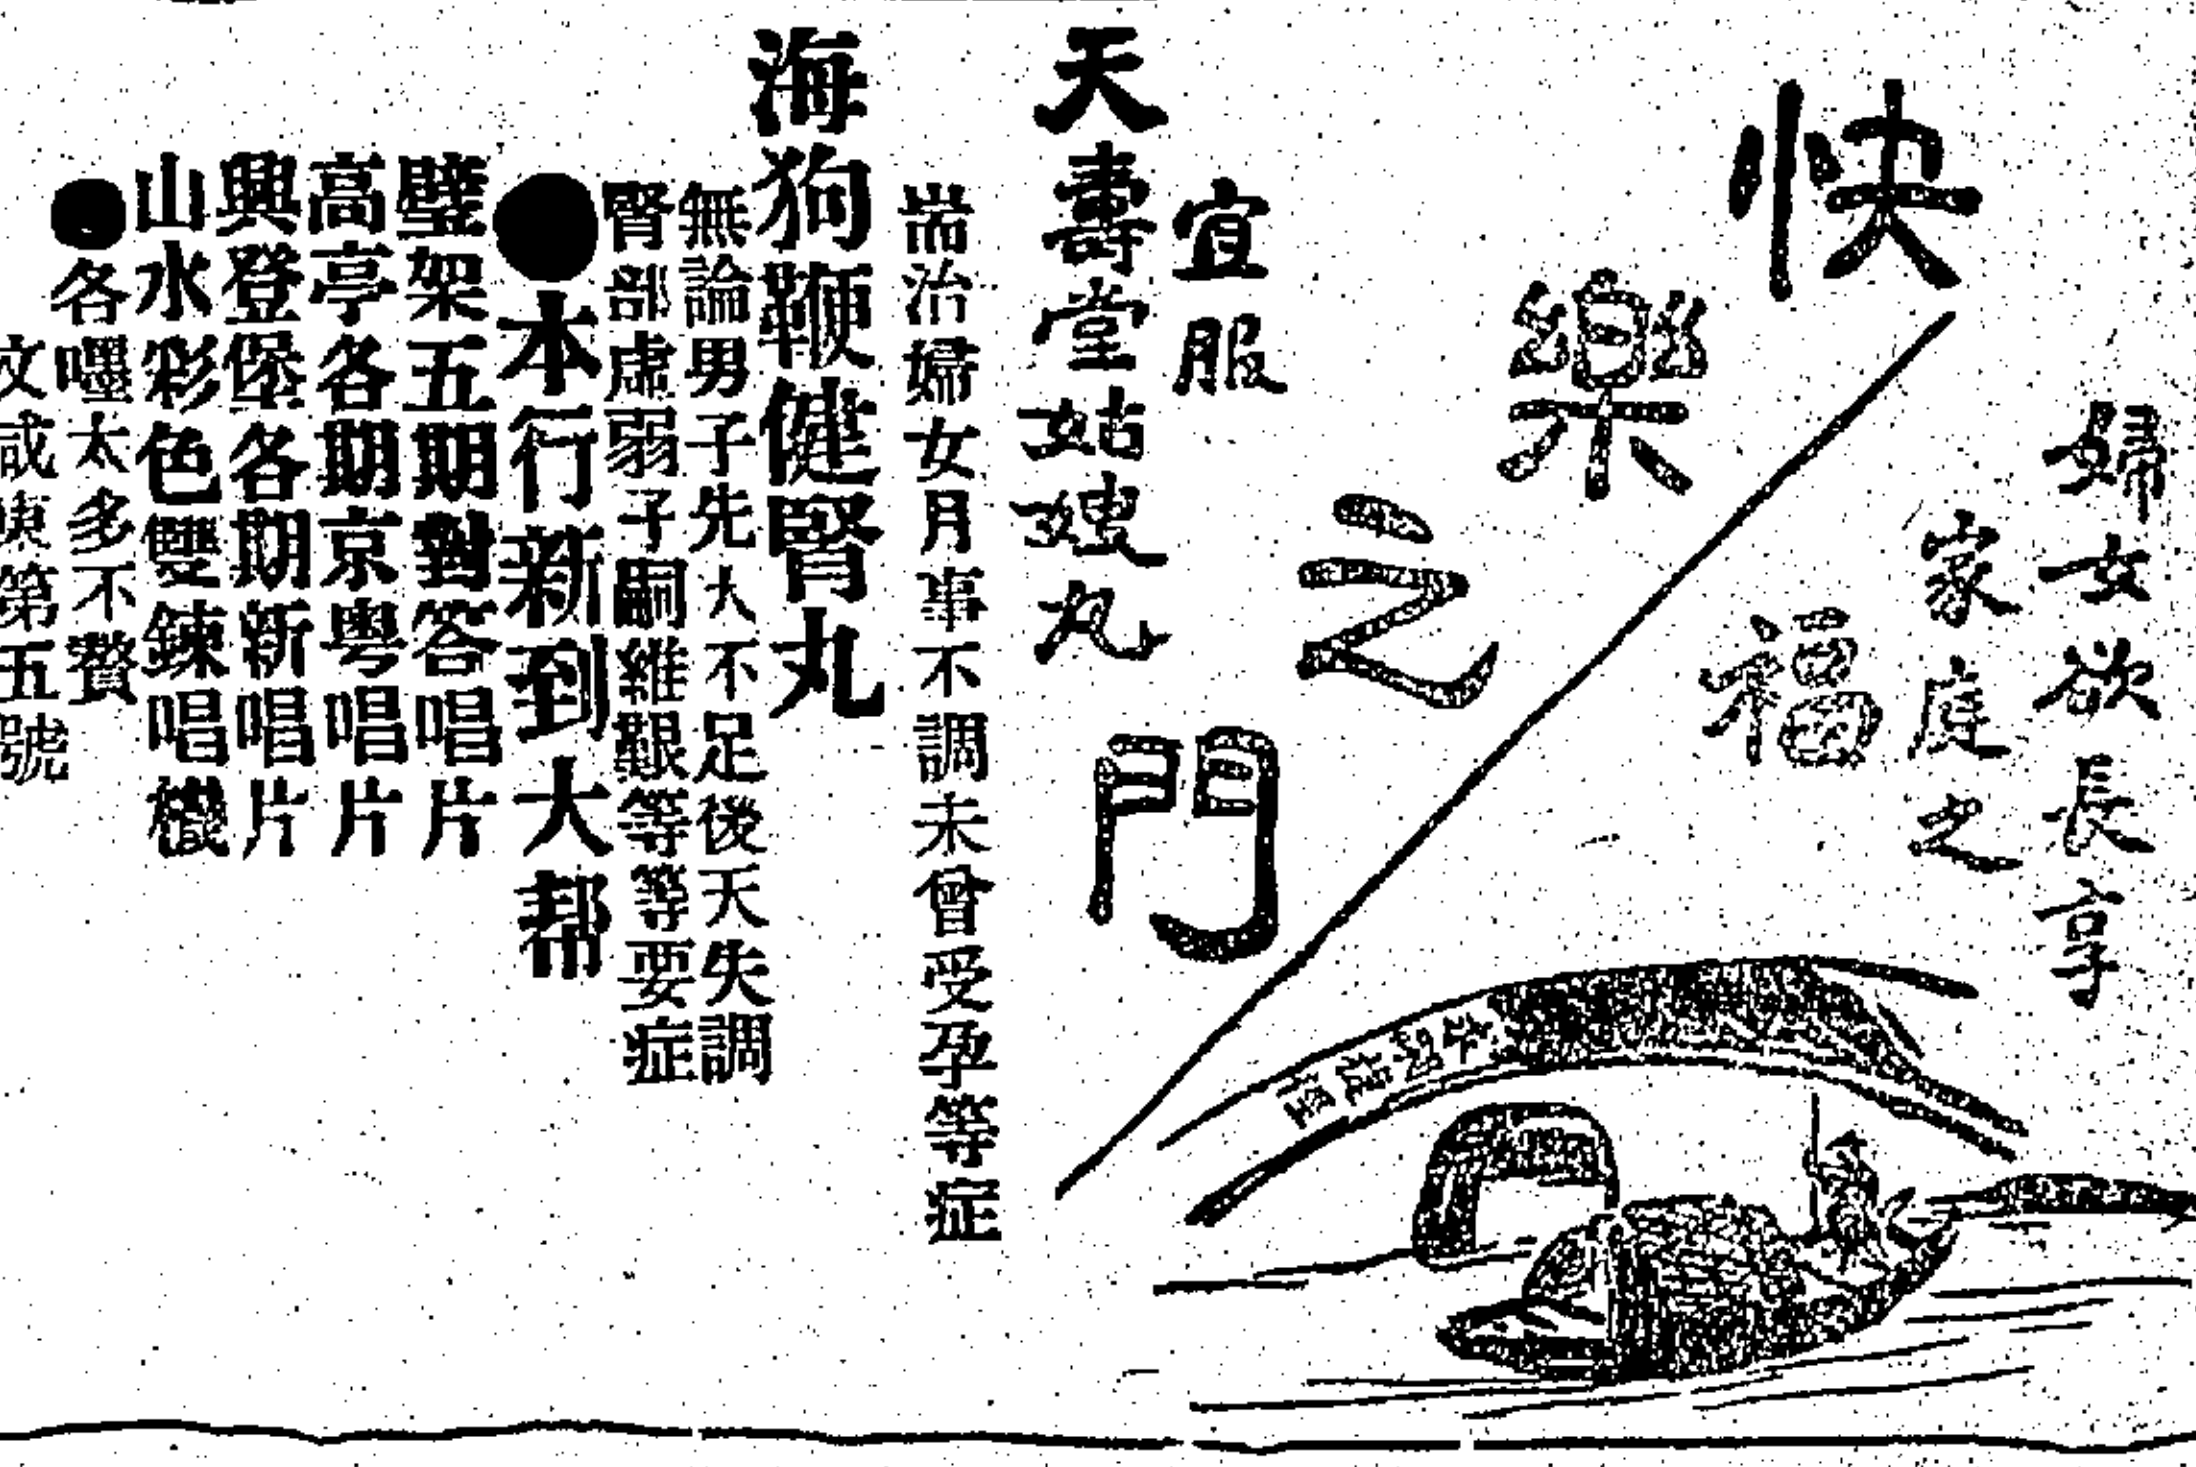 快樂之門
婦女欲長享
家庭之
福
宜服
天壽堂姑嫂丸
耑治婦女月事不調未曾受孕等症
海狗鞭健腎丸
無論男子先天不足後天失調
腎部虛弱子嗣維艱等等要症
●本行新到大帮
璧架五期對答唱片
高亭各期京粤唱片
興登堡各期新唱片
山水彩色雙鍊唱機
●各嘜太多不贅
文咸東第五號